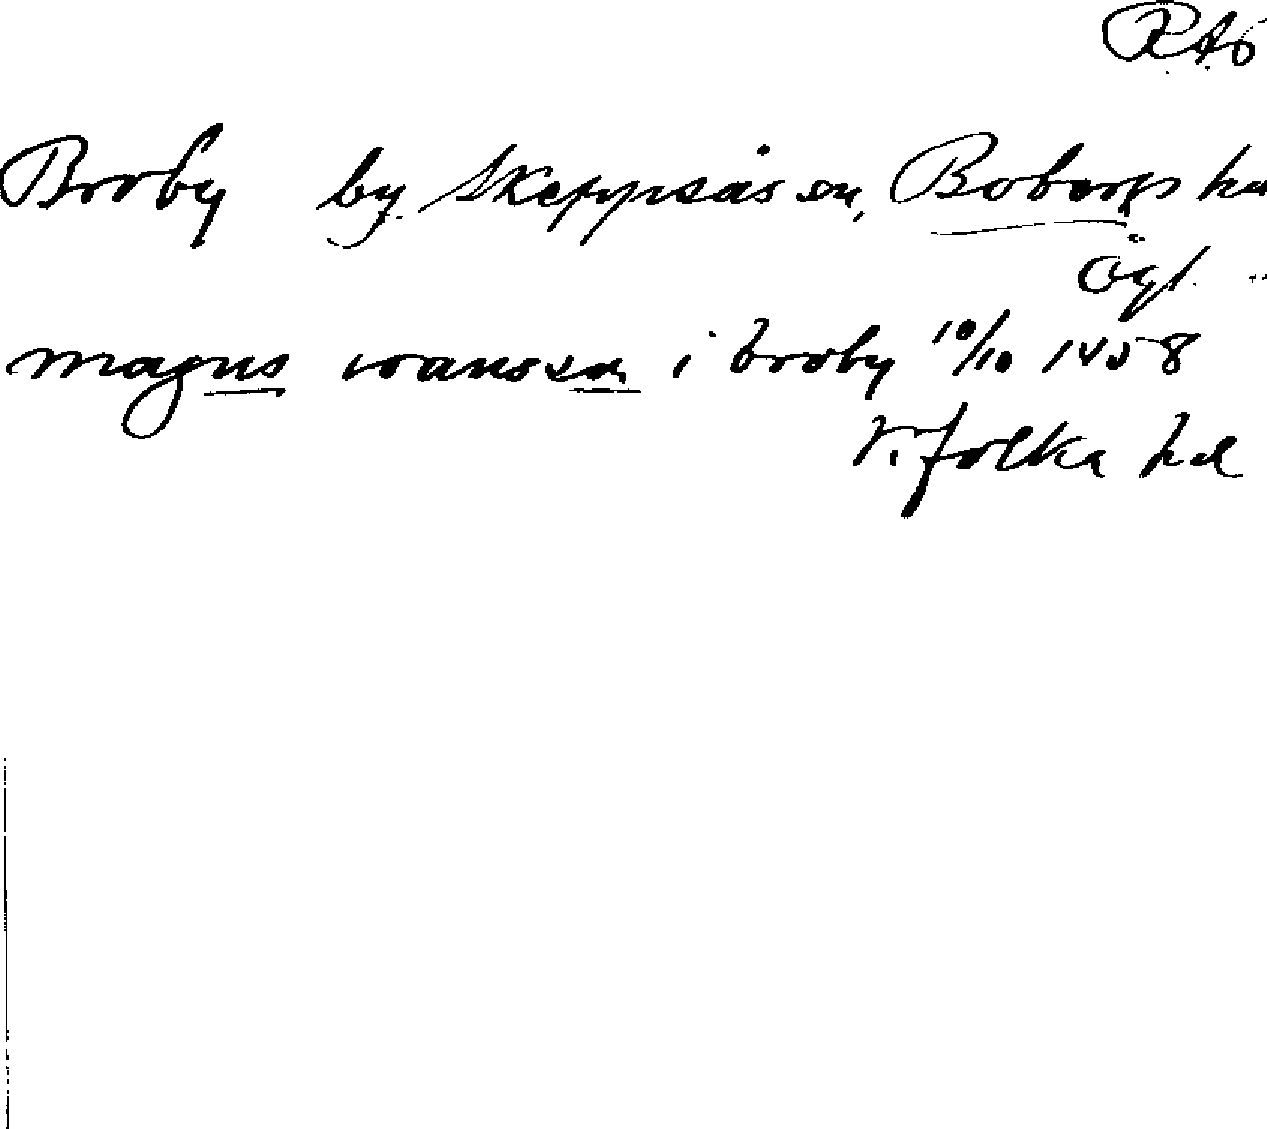 RAÖ
Broby by. Skeppsås sn, Bobergs hd
Ögl.
magnus iwansson i broby 10/10 1458
V. folka hd